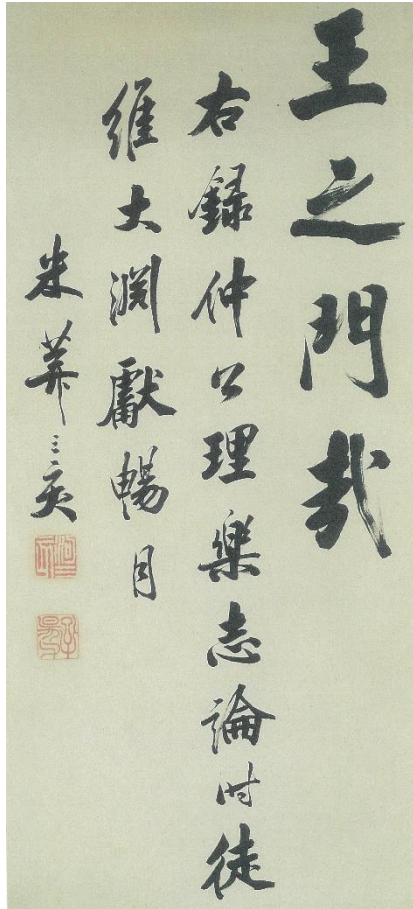 王之門哉
右録仲公理樂志論时徒
維大淵獻暢月
米葊三亥